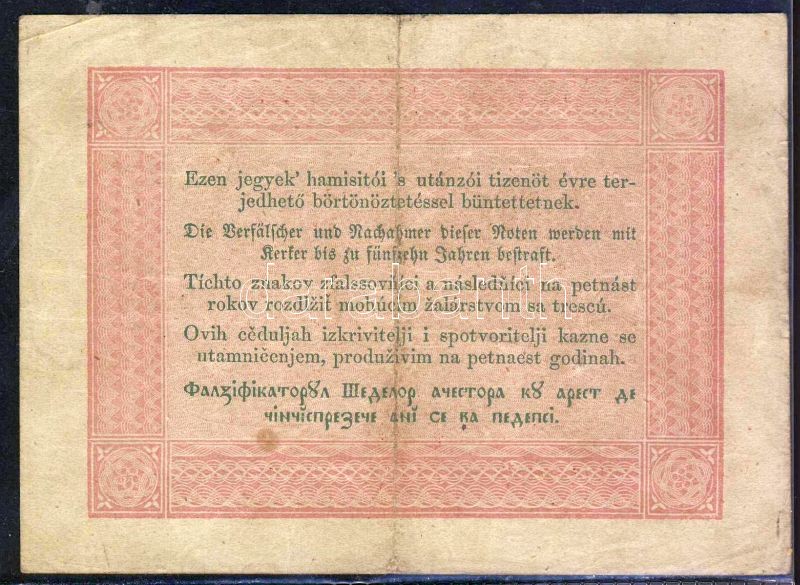 Ezen jegyek' hamisitói 's utánzói tizenöt évre ter-
jedhető börtönöztetéssel büntettetnek.
Die Verfälscher und Nachahmer dieser Noten werden mit
Kerker bis zu fünfzehn Jahren bestraft.
Tíchto znakov zfalssovňíci a následňíci na petnást
rokov rozdlžiť mohúcim žalárstvom sa trescú.
Ovih cĕduljah izkrivitelji i spotvoritelji kazne se
utamničenjem, produživim na petnaest godinah.
Фалꙁіфікаторꙋл Шеделор ачестора кꙋ арест де
чінчіспреꙁече ані се ва педепсі.
darabanth